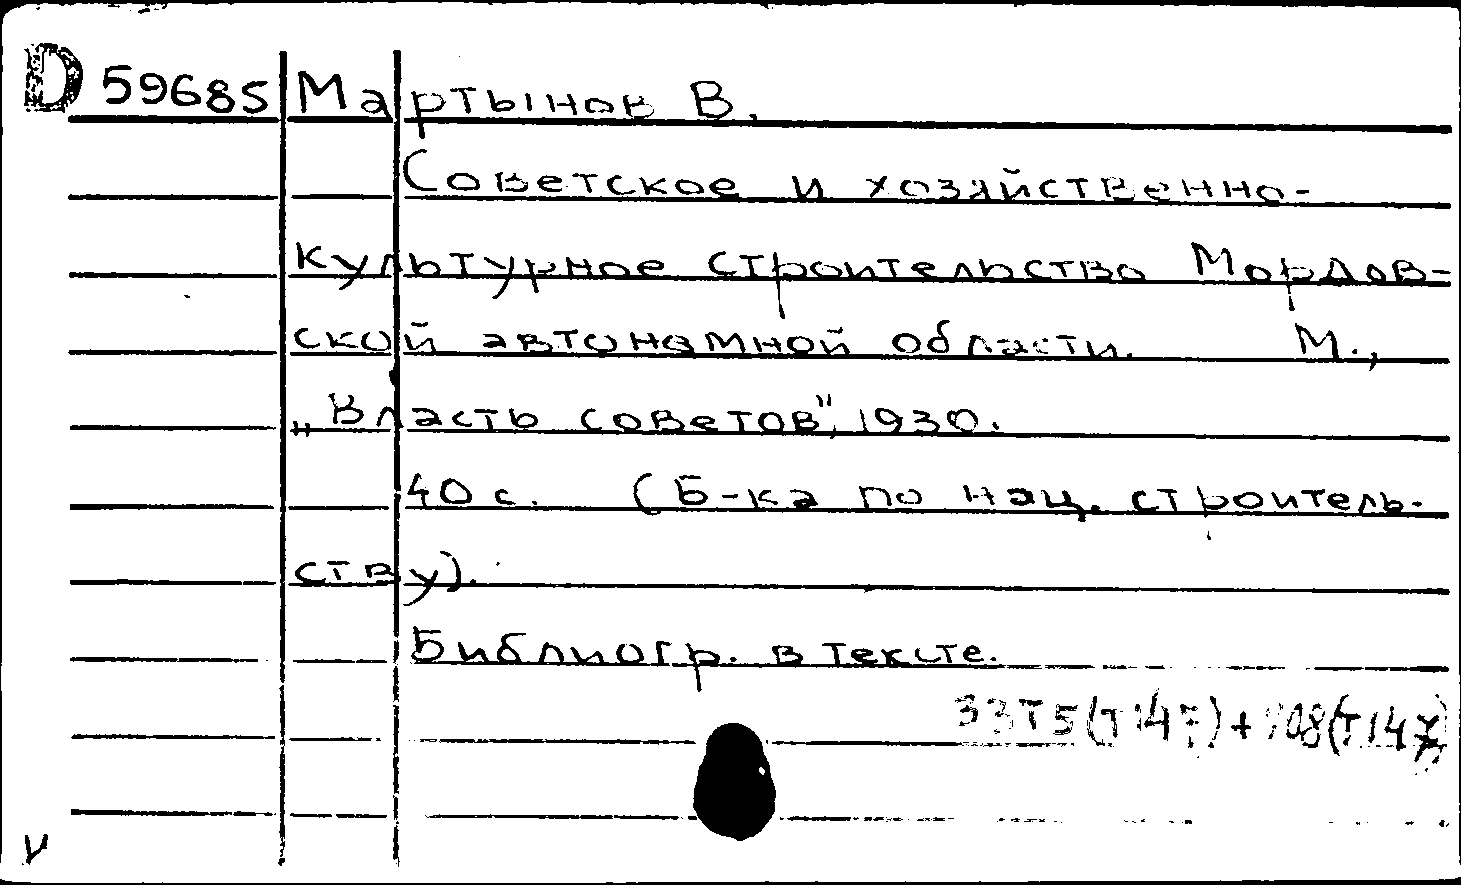 D 59685 Мартынов В.
Советское и хозяйственно-
культурное строительство Мордов-
ской автономной области. М.,
„Власть советов", 1930.
40 с. (Б-ка по нац. строитель-
ству).
Библиогр. в тексте.
33Т5(Т147)+908(Т147)
V